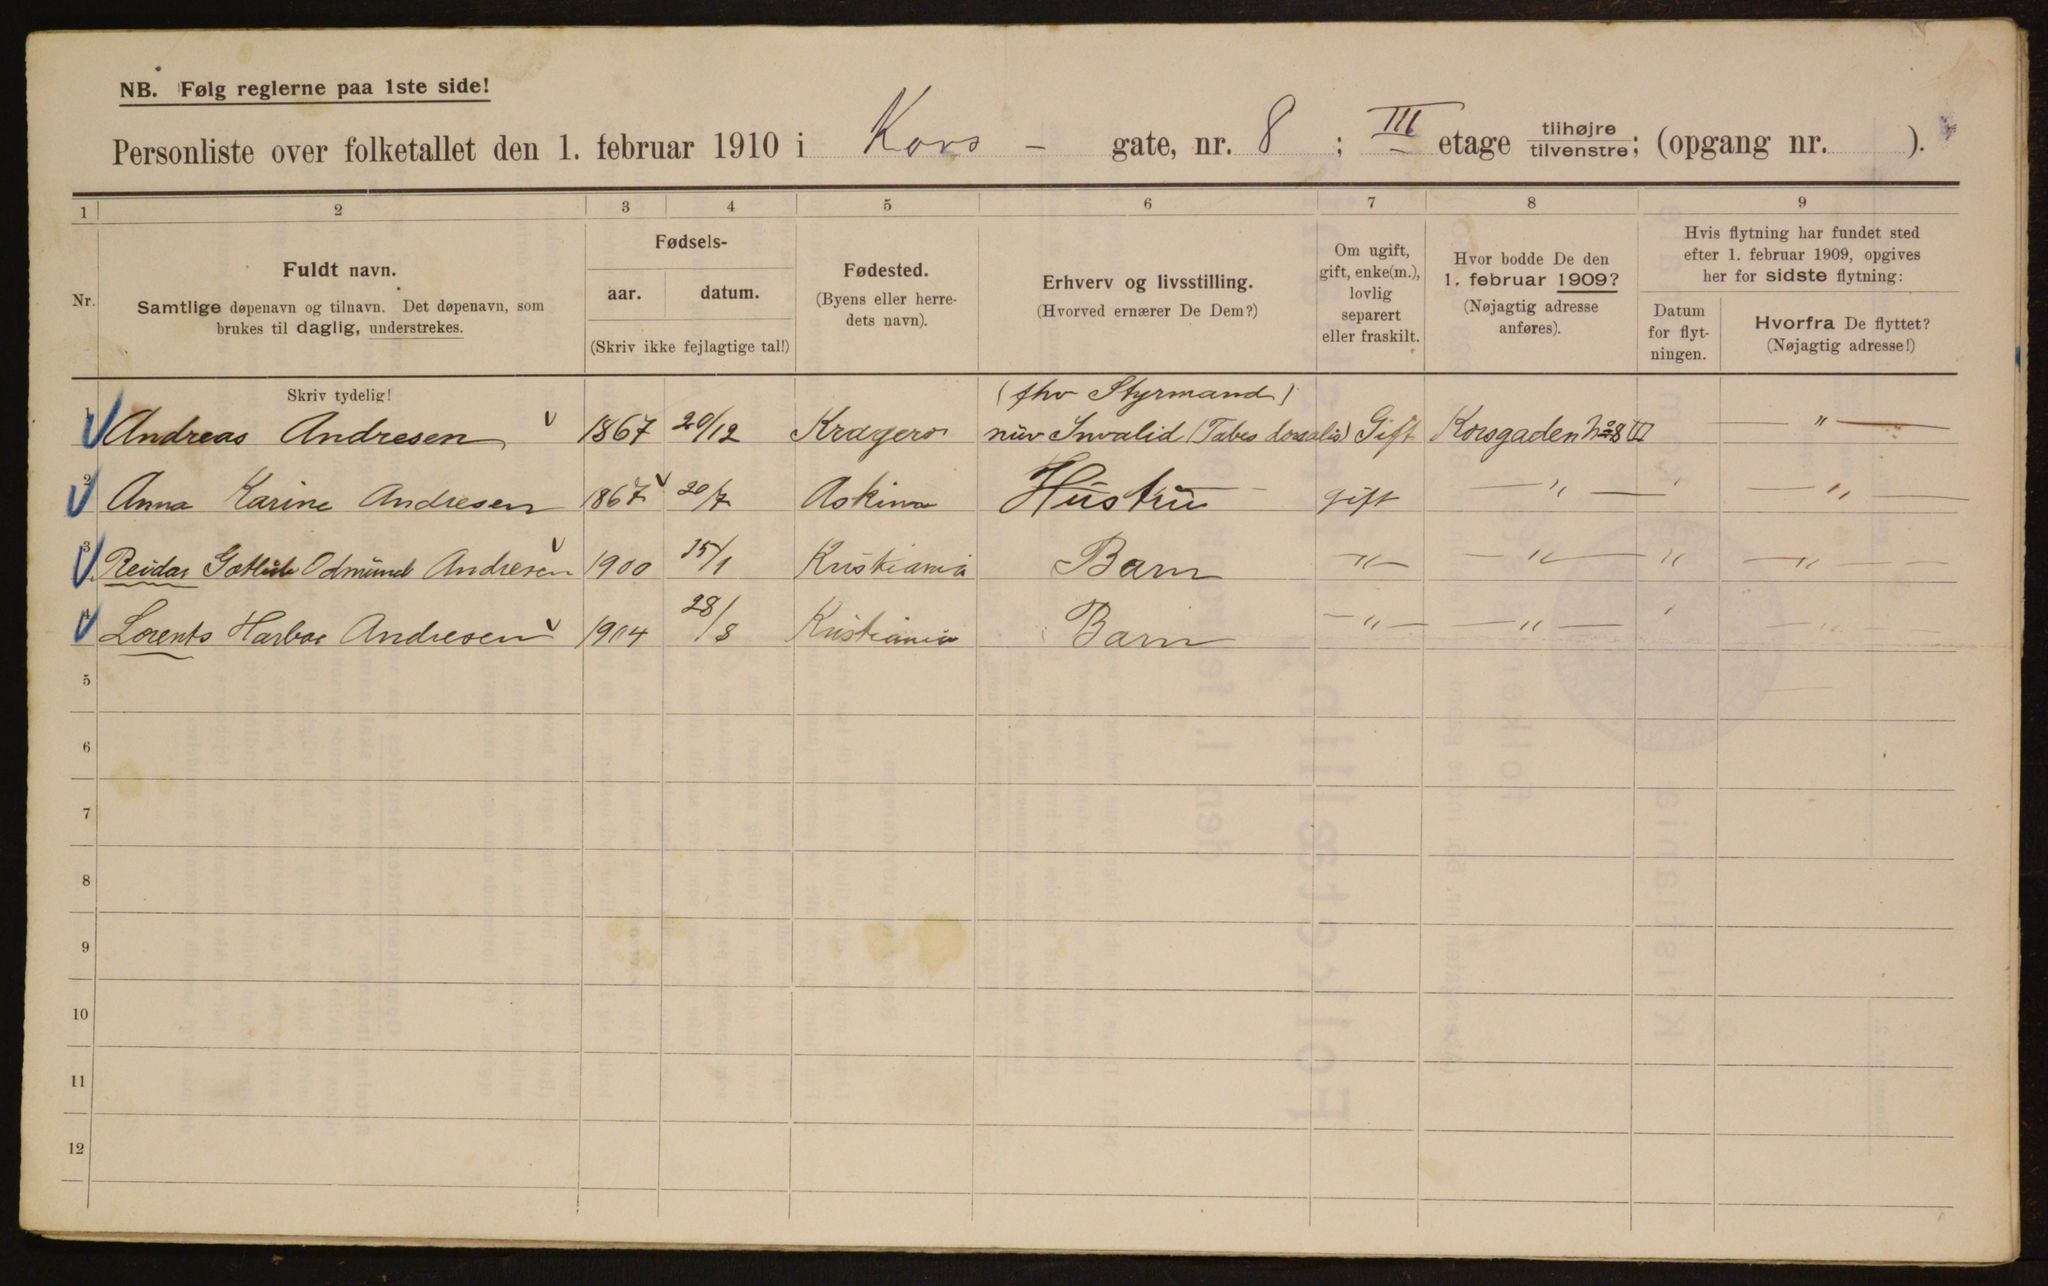 NB. Følg reglerne paa 1ste side!
Personliste over folketallet den 1. februar 1910 i Kors - gate, nr. 8 ; III etage tilhøjre tilvenstre; (opgang nr. ).
1 2 3 4 5 6 7 8 9
Nr.
Fuldt navn.
Samtlige døpenavn og tilnavn. Det døpenavn, som
brukes til daglig, understrekes.
Fødsels-
aar. datum.
(Skriv ikke fejlagtige tal!)
Fødested.
(Byens eller herre-
dets navn).
Erhverv og livsstilling.
(Hvorved ernærer De Dem?)
Om ugift,
gift, enke(m.),
lovlig
separert
eller fraskilt.
Hvor bodde De den
1. februar 1909?
(Nøjagtig adresse
anføres).
Hvis flytning har fundet sted
efter 1. februar 1909, opgives
her for sidste flytning:
Datum
for flyt-
ningen.
Hvorfra De flyttet?
(Nøjagtig adresse!)
Skriv tydelig!
(fhv Styrmand)
1 Andreas Andresen 1867 20/12 Kragerø nuv Invalid (Tabes dorsalis) Gift Korsgaden No 8 III — " —
2 Anna Karine Andresen 1867 20/7 Askim Hustru gift — " — " — " —
3 Reidar Odmund Andresen 1900 15/1 Kristiania Barn — " — — " — " — " — —
4 Lorents Harboe Andresen 1904 28/8 Kristiania Barn — " — — " — " — " —
5
6
7
8
9
10
11
12